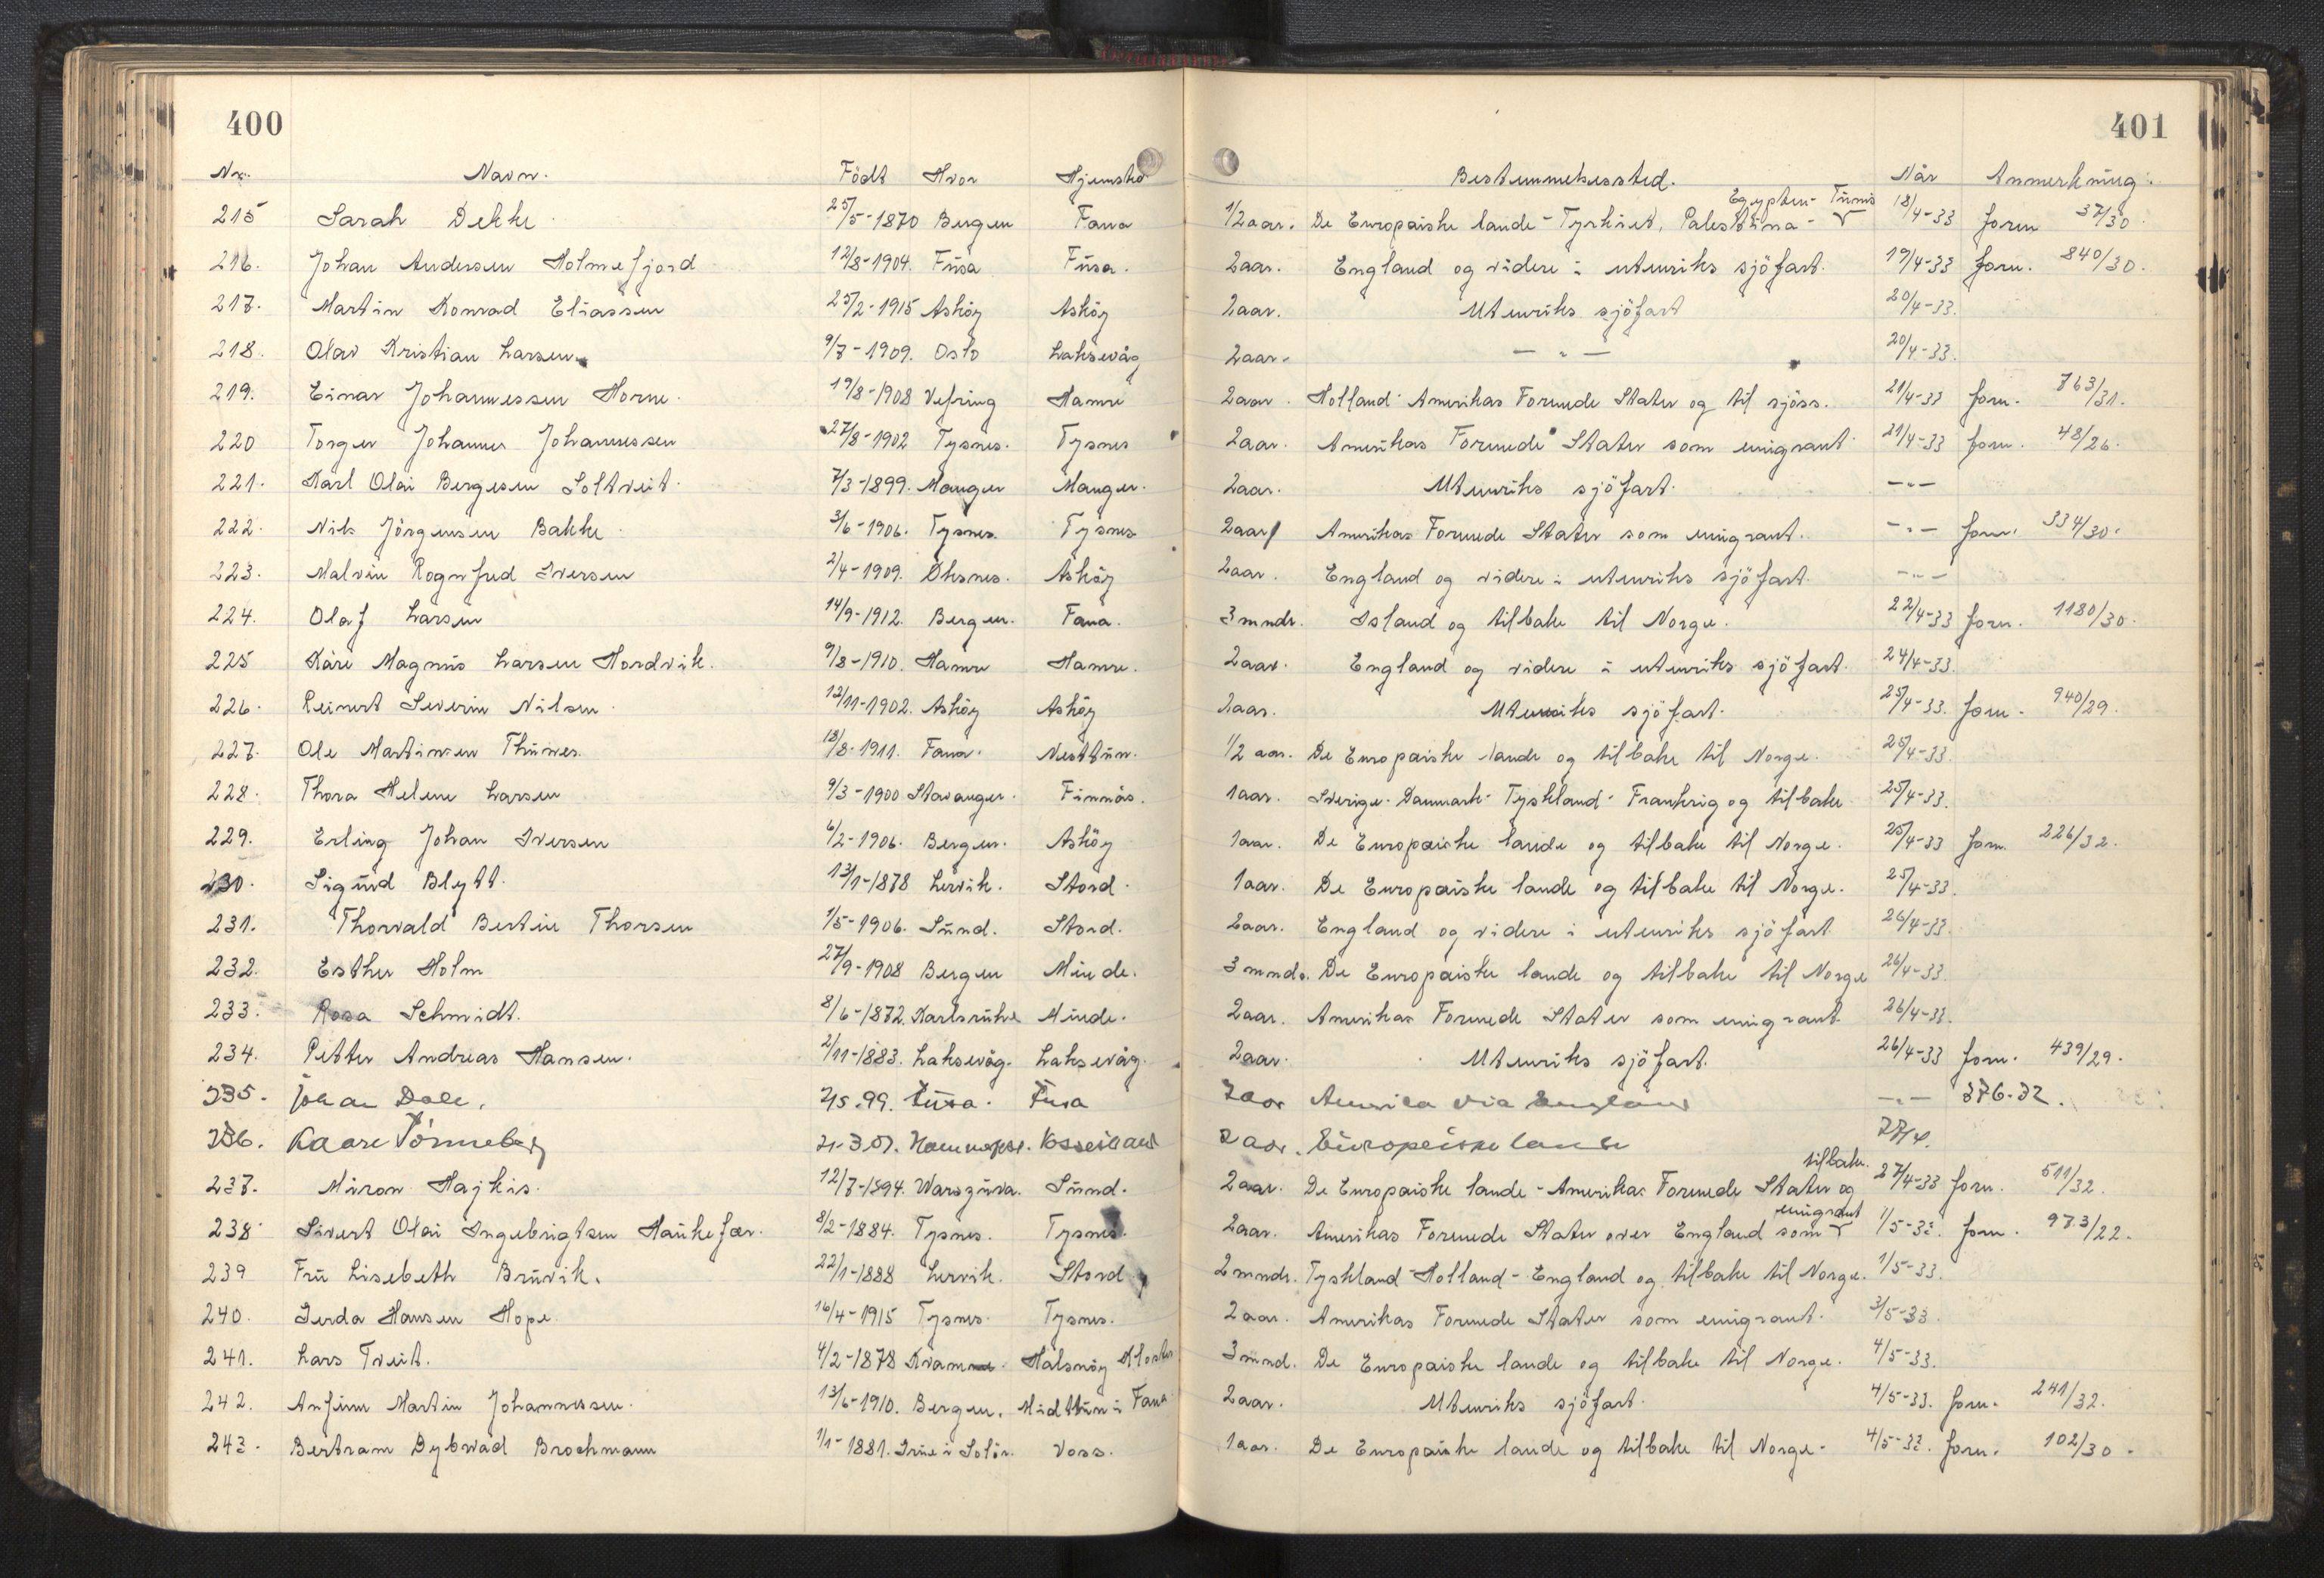 400
401
Nr. Navn. Födt Hvor Hjemsted Bestemmelsessted. Når Anmerkning.
Egypten - Tunis
215 Sarah Dekke 25/5-1870 Bergen Fana 1/2 aar. De Europaiske lande - Tyrkiet, Palestina - 18/4-33 forn 37/30
216. Johan Andersen Holmefjord 12/8-1904. Fusa Fusa. 2 aar. England og videre i utenriks sjöfart. 19/4-33 forn. 840/30.
217. Martin Konrad Eliassen 25/2-1915 Asköy Asköy 2 aar. Utenriks sjöfart 20/4-33.
218. Olav Kristian Larsen. 9/7-1909. Oslo Laksevåg 2 aar. — " — 20/4-33.
219. Einar Johannessen Horne. 19/8-1908 Vefring Hamre 2 aar. Holland - Amerikas Forenede Stater og til sjöss. 21/4-33 forn. 763/31.
220 Torger Johannes Johannessen 27/8-1902 Tysnes. Tysnes 2 aar. Amerikas Forenede Stater som emigrant 21/4-33 forn. 48/26.
221. Karl Olai Bergesen Soltveit. 7/3-1899. Manger Manger. 2 aar. Utenriks sjöfart. — " —
222. Nils Jörgensen Bakke 3/6-1906. Tysnes. Tysnes 2 aar Amerikas Forenede Stater som emigrant. — " — forn. 334/30.
223. Malvin Rognfred Iversen 2/4-1909. Öksnes. Asköy 2 aar. England og videre i utenriks sjöfart. — " —
224. Olaf Larsen 14/9-1912. Bergen. Fana. 3 mndr. Island og tilbake til Norge. 22/4-33 forn. 1180/30.
225 Kåre Magnus Larsen Hordvik. 9/8-1910. Hamre Hamre. 2 aar. England og videre i utenriks sjöfart. 24/4-33.
226. Reinert Severin Nilsen 12/11-1902. Asköy Asköy 2 aar. Utenriks sjöfart. 25/4-33. forn. 940/29.
227. Ole Martinsen Thunes. 18/8-1911. Fana. Nesttun. 1/2 aar. De Europaiske lande og tilbake til Norge. 25/4-33.
228. Thora Helene Larsen 9/3-1900 Stavanger. Finnås. 1 aar. Sverige - Danmark - Tyskland - Frankrig og tilbake 25/4-33.
229. Erling Johan Iversen 6/2-1906. Bergen. Asköy 1 aar. De Europaiske lande og tilbake til Norge. 25/4-33 forn. 226/32.
230. Sigurd Blytt. 13/1-1878 Lervik. Stord. 1 aar. De Europaiske lande og tilbake til Norge. 25/4-33.
231. Thorvald Bertin Thorsen 1/5-1906. Sund. Stord. 2 aar. England og videre i utenriks sjöfart 26/4-33.
232. Esther Holm 27/9-1908 Bergen Minde. 3 mndr. De Europaiske lande og tilbake til Norge 26/4-33.
233. Rosa Schmidt. 8/6-1872. Karlsruhe Minde. 2 aar. Amerikas Forenede Stater som emigrant 26/4-33.
234. Petter Andreas Hansen. 2/11-1883. Laksevåg. Laksevåg. 2 aar. Utenriks sjöfart. 26/4-33 forn. 439/29.
235. Johan Dale. 2/5.99. Fusa. Fusa 2 aar Amerika via England — " — 376-32.
236. Kaare Tönneberg 21-3.07. 2 aar. Europeiske lande 27/4.
tilbake.
237. Miron Hajkis. 12/7-1894. Warszawa. Sund. 2 aar. De Europaiske lande - Amerikas Forenede Stater og 27/4-33 forn. 511/32.
emigrant
238. Sivert Olai Ingebrigtsen Haukefær. 8/2-1884. Tysnes. Tysnes. 2 aar. Amerikas Forenede Stater over England som 1/5-33. forn. 973/22.
239 Fru Lisebeth Bruvik. 22/1-1888 Lervik. Stord 2 mndr. Tyskland - Holland - England og tilbake til Norge. 1/5-33.
240. Gerda Hansen Hope. 16/4-1915 Tysnes. Tysnes. 2 aar. Amerikas Forenede Stater som emigrant. 3/5-33.
241. Lars Tveit. 4/2-1878 Kvam. Halsnöy Kloster 3 mnd. De Europaiske lande og tilbake til Norge. 4/5-33.
242. Anfinn Martin Johannessen. 13/6-1910. Bergen. Midttun i Fana 2 aar. Utenriks sjöfart. 4/5-33. forn. 241/32.
243. Bertram Dybwad Brochmann 1/1-1881. Grue i Solör. Voss. 1 aar. De Europaiske lande og tilbake til Norge. 4/5-33. forn. 102/30.